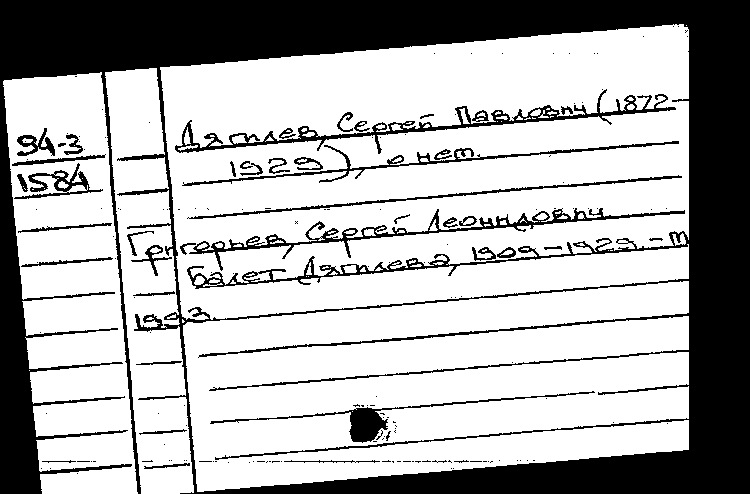 94-3
1584
Дягилев, Сергей Павлович (1872-
1929), о нем.
Григорьев, Сергей Леонидович.
Балет Дягилева, 1909-1929. - М
1993.